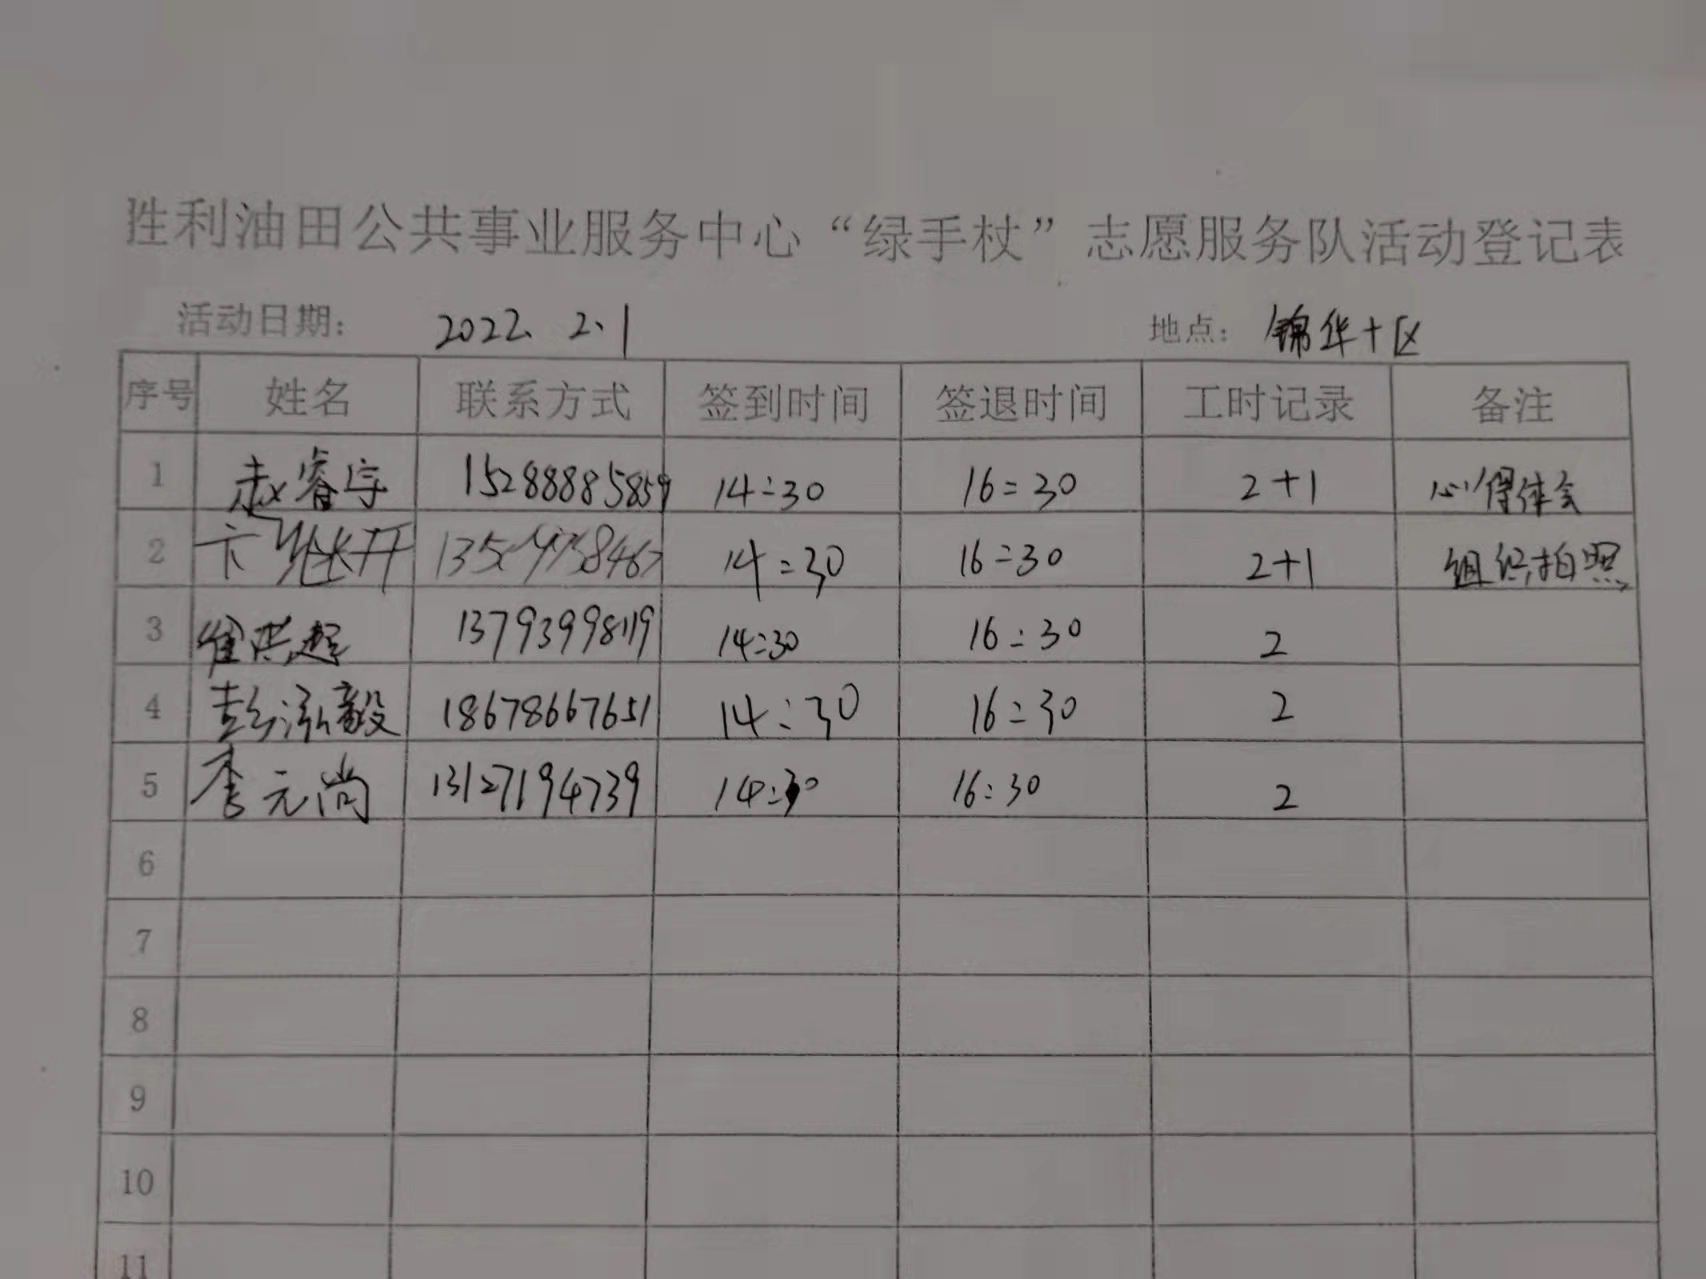 胜利油田公共事业服务中心“绿手杖”志愿服务队活动登记表
活动日期: 2022.2.1 地点: 锦华十区
序号 姓名 联系方式 签到时间 签退时间 工时记录 备注
1 赵睿宇 15288885859 14:30 16:30 2+1 心得体会
2 卞继开 14:30 16:30 2+1 组织拍照
3 崔洪超 13793998119 14:30 16:30 2
4 彭泓毅 18678667651 14:30 16:30 2
5 李元尚 13127194739 14:30 16:30 2
6
7
8
9
10
11